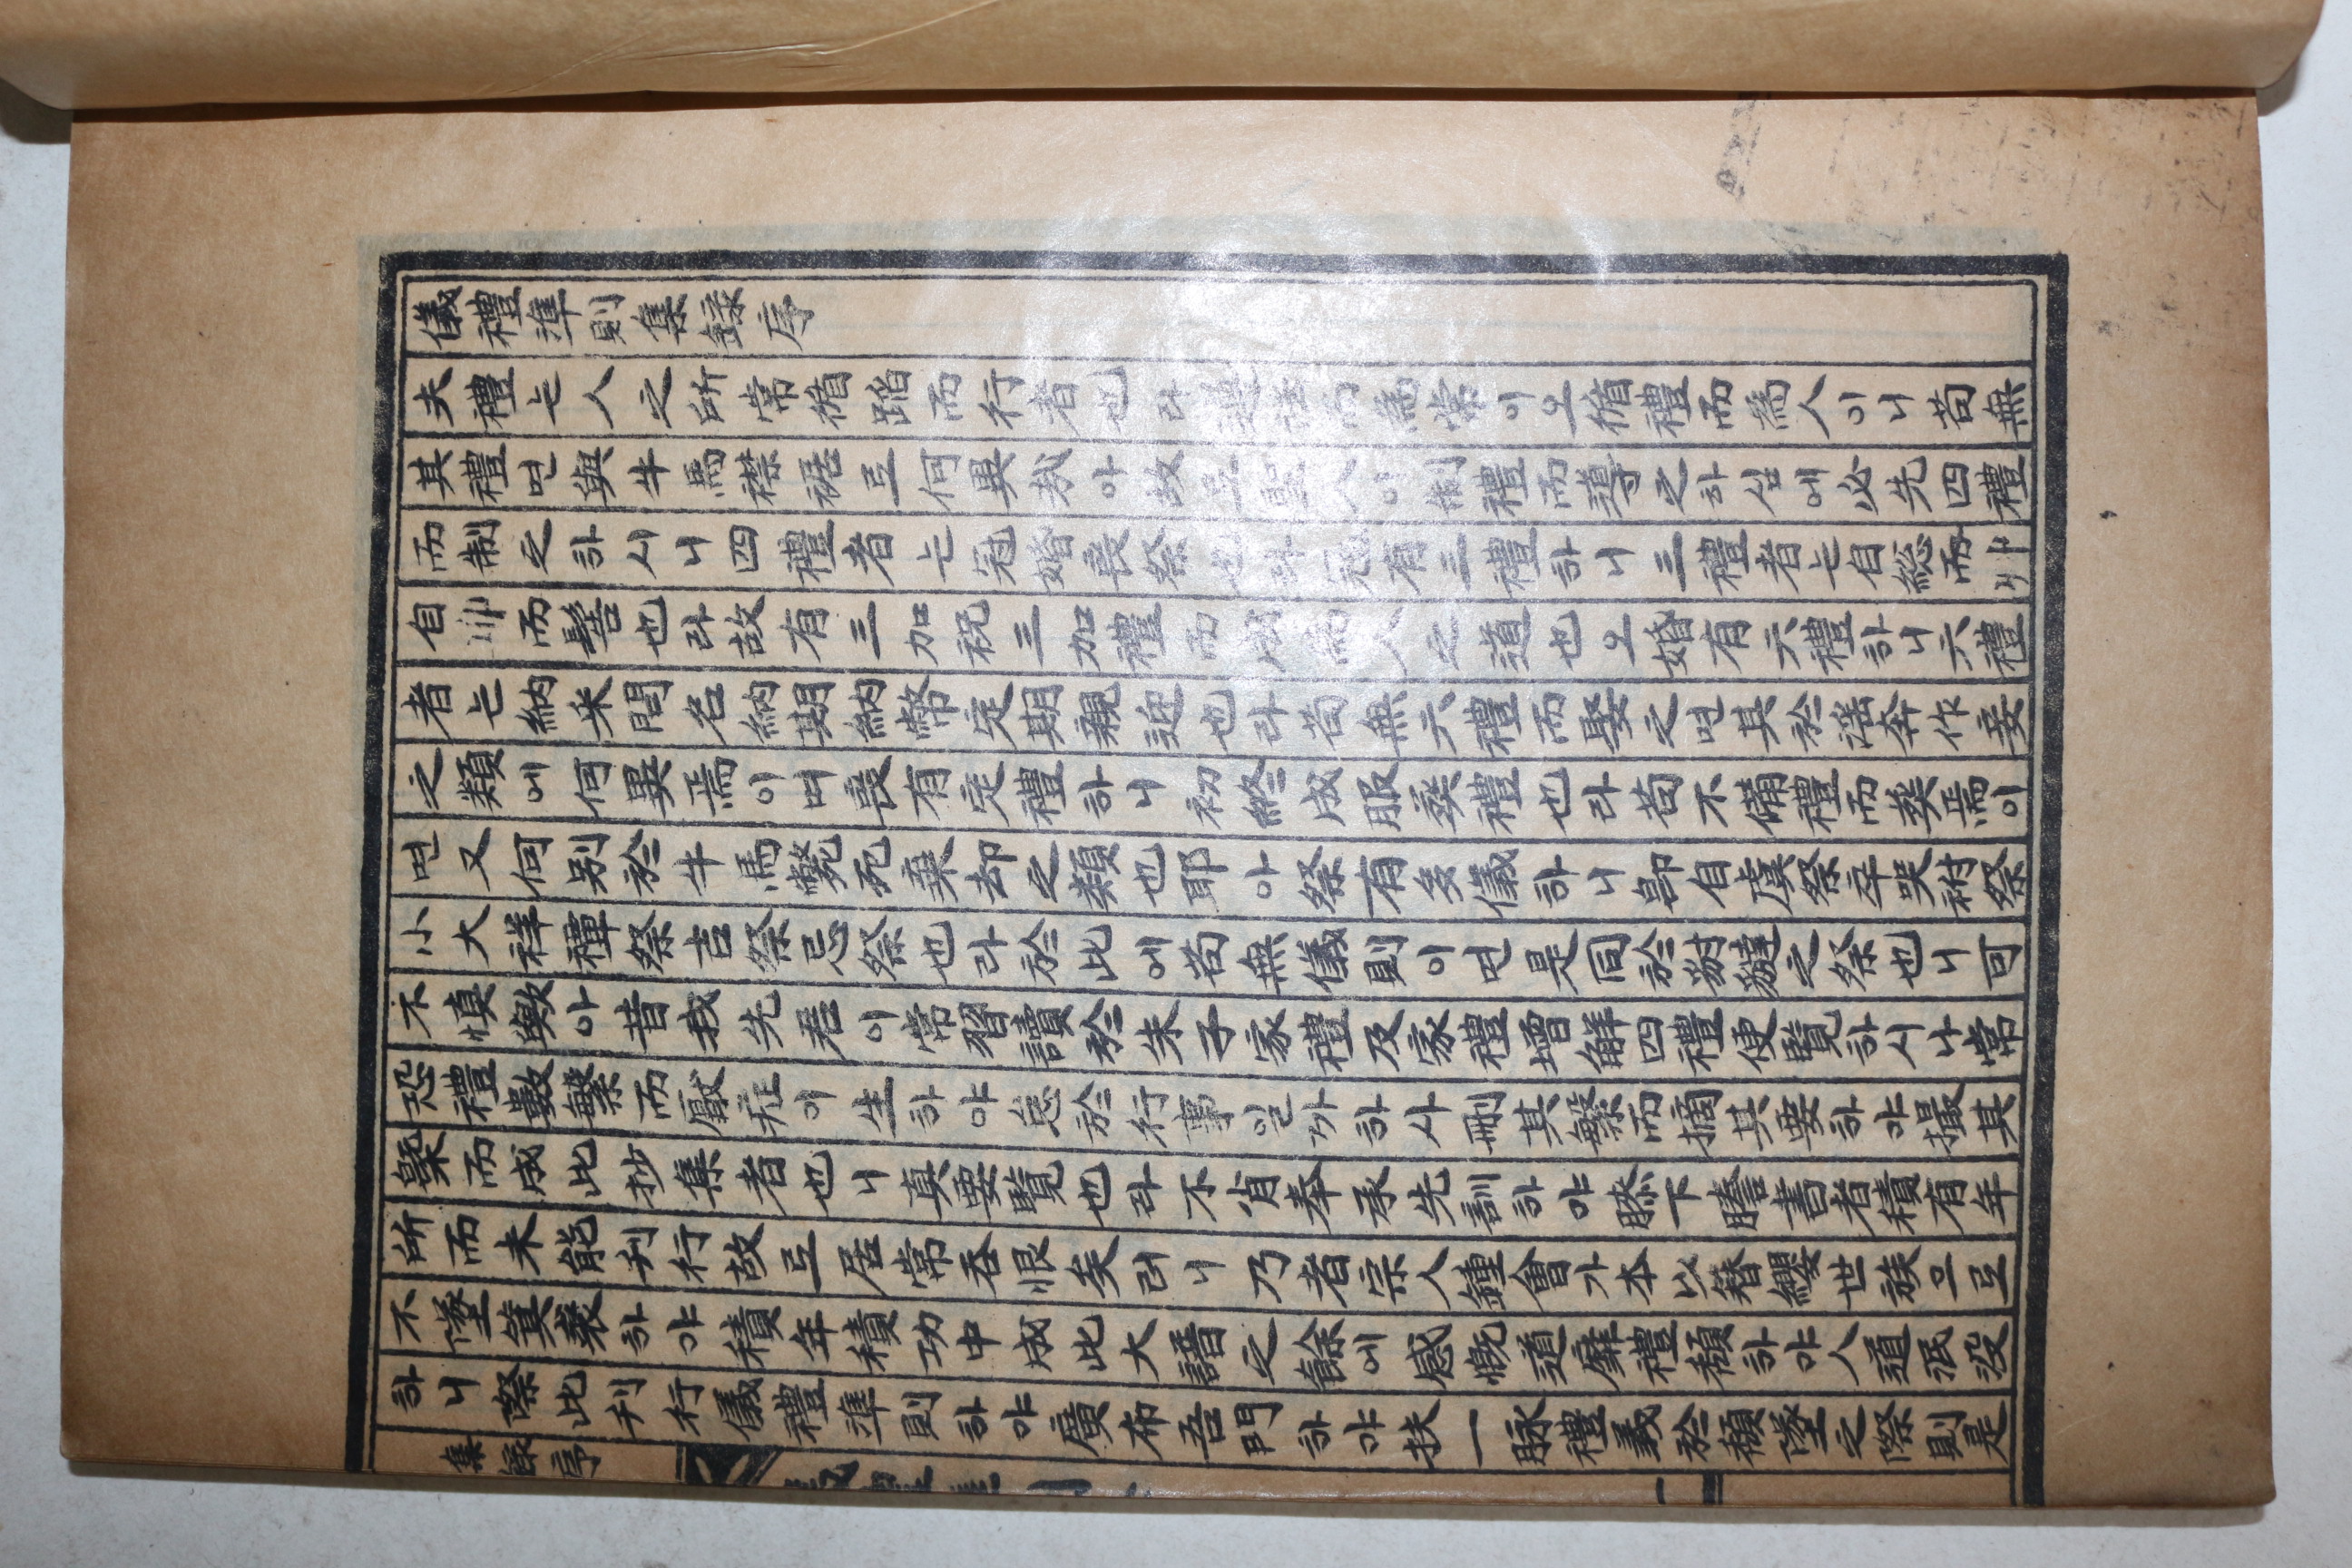 儀禮準則集錄序
夫禮는人之所常循蹈而行者也라遵活而為常이오循禮而為人이니苟無
其禮면與牛馬襟裾로何異哉아故로聖人이制禮而導之하심에必先四禮
而制之하시니四禮者는冠婚喪祭也라冠有三禮하니三禮者는自總而
自丱而髻也라故有三加祝三加禮而成為人之道也오婚有六禮하니六禮
者는納采問名納期納幣定期親迎也라苟無六禮而娶之면其於淫奔作妾
之類에何異焉이며喪有定禮하니初終成服葬禮也라苟不備禮而葬焉이
면又何別於牛馬斃死棄却之類也耶아祭有多儀하니卽自虞祭卒哭祔祭
小大祥禫祭吉祭忌祭也라於此에苟無儀則이면是同於豺獺之祭也니可
不慎歟아昔我先君이常習讀於朱子家禮及家禮增解四禮便覽하시나常
恐禮數繁而厭症이生하야怠於行事일까하사刪其繁而摘其要하야撮其
槩而成此抄集者也니真要覽也라不肖奉承先訓하야膝下謄書者積有年
所而未能刋行故로居常呑恨矣러니乃者宗人鍾會가本以簪纓世族으로
不墜箕裘하야積年積功中成此大譜之餘에感慨道靡禮頹하야人道泯没
하니際此刋行儀禮準則하야廣布吾門하야扶一脉禮義於頹墜之際則是
集錄序